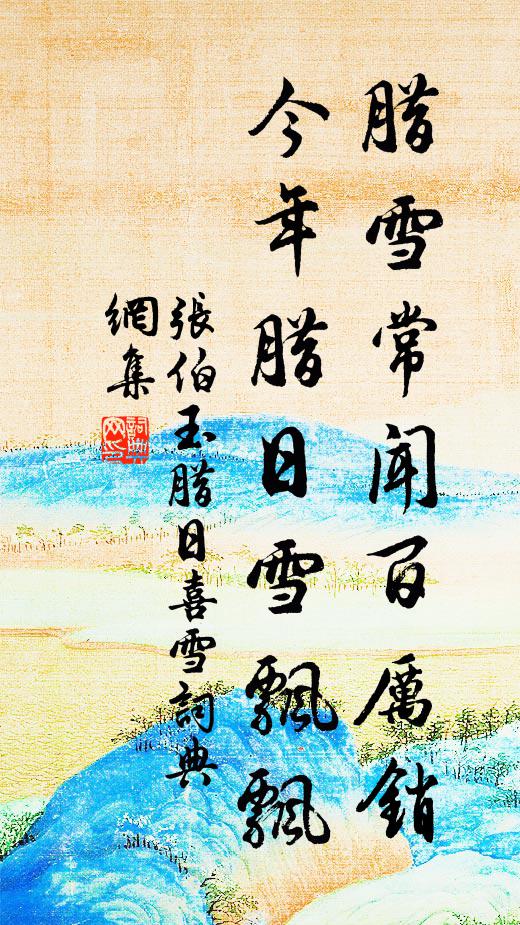 腊雪常闻百厉銷
今年腊日雪飄飄
張伯玉腊日喜雪詞典
網集